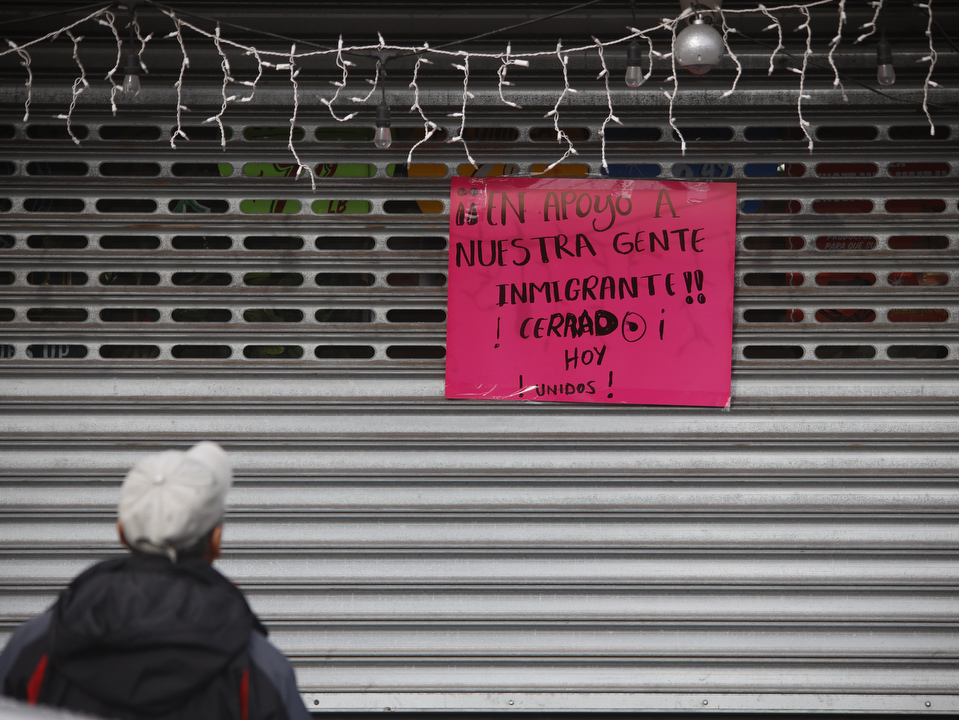 ¡¡EN APOYO A
NUESTRA GENTE
INMIGRANTE!!
! CERRADO ¡
HOY
! UNIDOS !